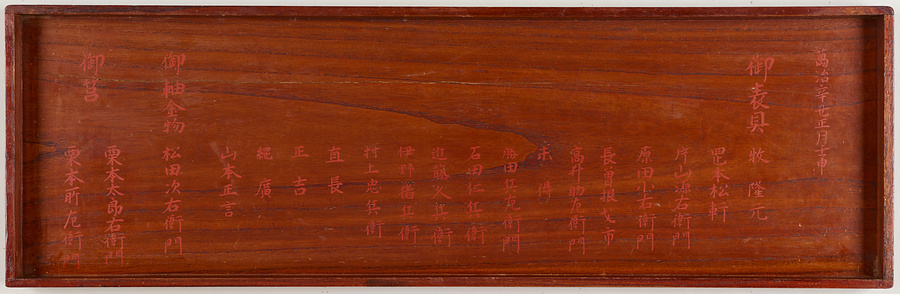 萬治辛丑正月十有
御表具 牧隆元
岡本松軒
片山源右衛門
原田小右衛門
長曽根甚市
高井助左衛門
未得
勝田兵左衛門
石田仁兵衛
進藤久兵衛
伊耕指兵衛
村上忠兵衛
直長
正吉
縄廣
山本正言
御軸金物 松田次右衛門
栗本太郎右衛門
御筥 栗本前左衛門